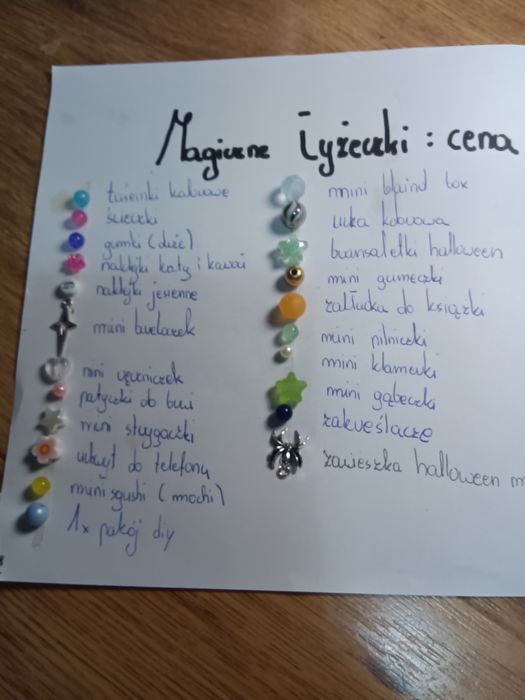 Magiczne Łyżeczki : cena
tasiemki kolorowe
gumki (duże)
naklejki koty i kawaii
naklejki jesienne
mini breloczek
mini ręczniczek
mini
uchwyt do telefonu
mini squshi (mochi)
1x pokój diy
mini blaind box
kolorowa
bransoletki halloween
mini gumeczki
zakładka do książki
mini pilniczki
mini klamerki
mini gąbeczki
zakreślacze
zawieszka halloween